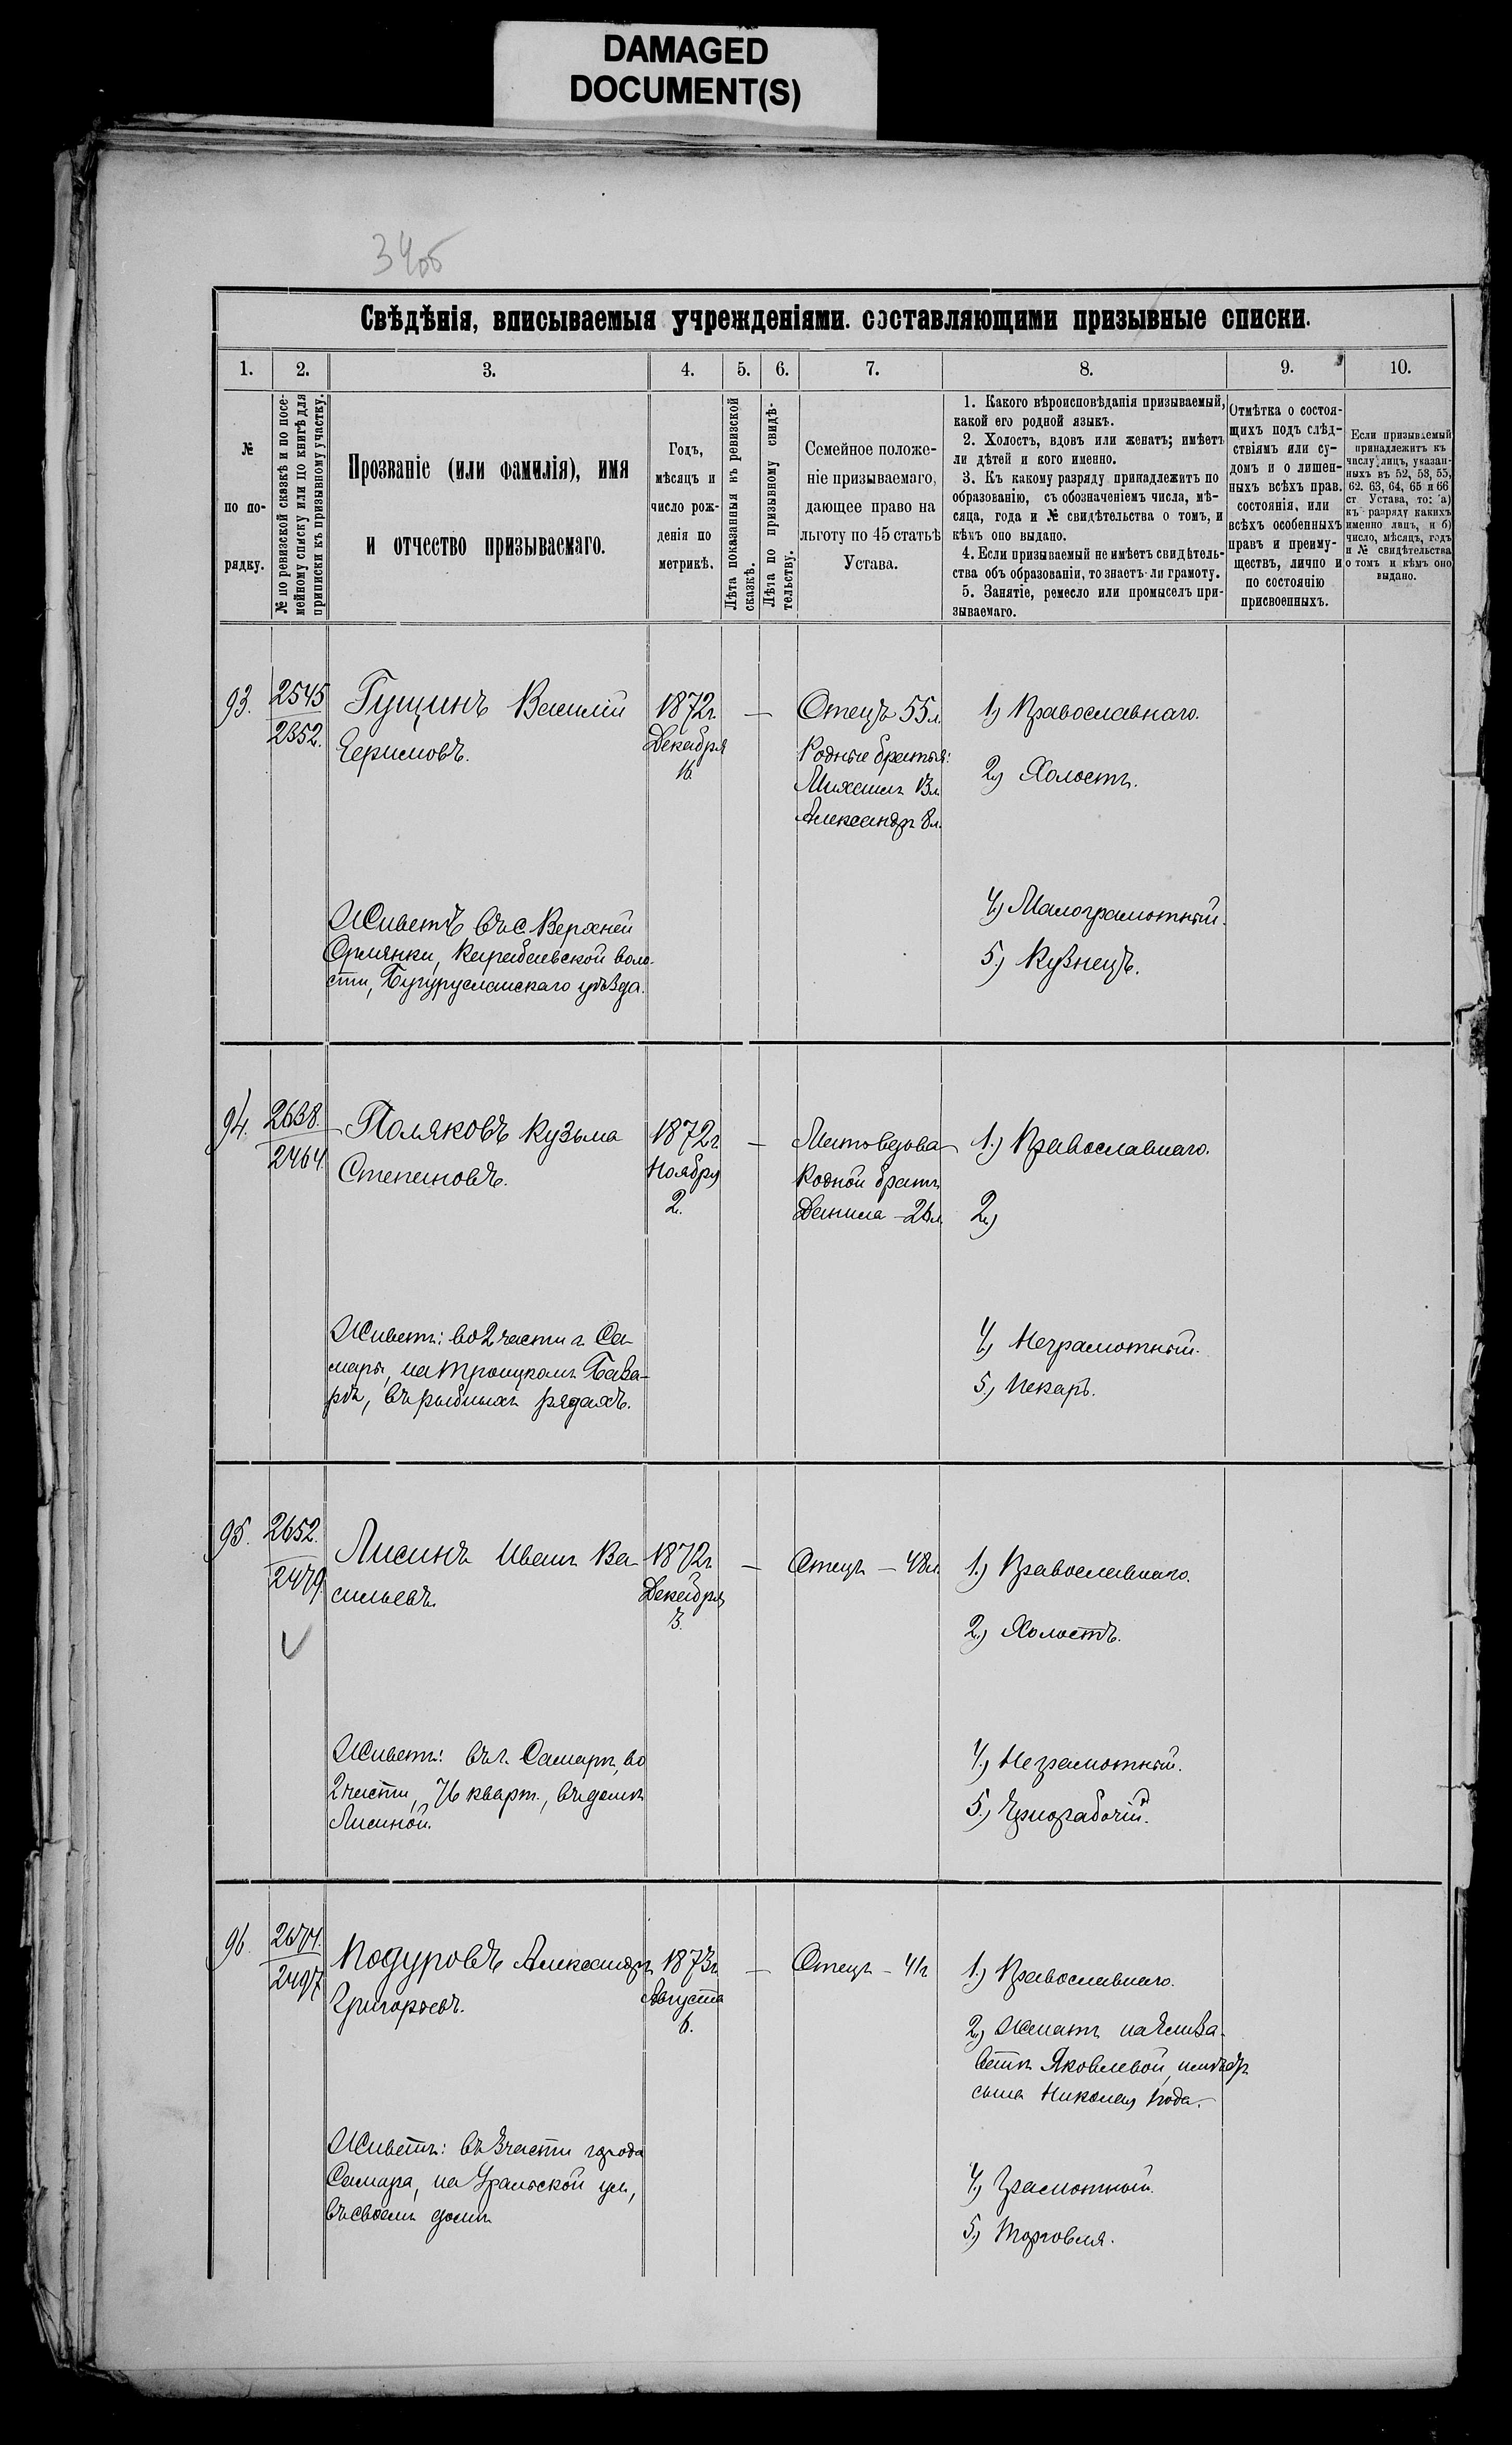 DAMAGED
DOCUMENT(S)
34об
Свѣдѣнія, вписываемыя учрежденіями. составляющими призывные списки.
1. 2. 3. 4. 5. 6. 7. 8. 9. 10.
№
по по-
рядку.
№ по ревизской сказкѣ и по посе-
мейному списку или по книгѣ для
приписки къ призывному участку.
Прозваніе (или фамилія), имя
и отчество призываемаго.
Годъ,
мѣсяцъ и
число рож-
денія по
метрикѣ.
Лѣта показанныя въ ревизской
сказкѣ.
Лѣта по призывному свидѣ-
тельству.
Семейное положе-
ніе призываемаго,
дающее право на
льготу по 45 статьѣ
Устава.
1. Какого вѣроисповѣданія призываемый,
какой его родной языкъ.
2. Холостъ, вдовъ или женатъ; имѣетъ
ли дѣтей и кого именно.
3. Къ какому разряду принадлежитъ по
образованію, съ обозначеніемъ числа, мѣ-
сяца, года и № свидѣтельства о томъ, и
кѣмъ оно выдано.
4. Если призываемый не имѣетъ свидѣтель-
ства объ образованіи, то знаетъ-ли грамоту.
5. Занятіе, ремесло или промыселъ при-
зываемаго.
Отмѣтка о состоя-
щихъ подъ слѣд-
ствіямъ или су-
домъ и о лишен-
ныхъ всѣхъ прав.
состоянія, или
всѣхъ особенныхъ
правъ и преиму-
ществъ, лично и
по состоянію
присвоенныхъ.
Если призываемый
принадлежитъ къ
числу лицъ, указан-
ныхъ въ 52, 53, 55,
62. 63, 64, 65 и 66
ст Устава, то: а)
къ разряду какихъ
именно лицъ, и б)
число, мѣсяцъ, годъ
и № свидѣтельства
о томъ и кѣмъ оно
выдано.
93.
2545
2352.
Гущинъ Василій
1872г.
Декабря
16
—
Отецъ 55л.
Родные братья:
Михаилъ 13л.
Александръ 8л.
1) Православнаго.
2) Холостъ.
4) Малограмотный.
5.) Кузнецъ.
Живетъ въ с. Верхней
Орлянки, Карабаевской воло-
сти, Бугурусланскаго уѣзда.
94.
2638.
2464.
Поляковъ Кузьма
Степановъ.
1872г
Ноября
2.
—
Мать вдова
Родной братъ
Данила — 26л.
1.) Православнаго.
2.)
4.) Неграмотный.
5.) Пекарь.
Живетъ: во 2 части г. Са-
мары, на Троицкомъ База-
рѣ, въ рыбныхъ рядахъ.
95.
2652.
2479
Лисинъ Иванъ Ва-
сильевъ.
1872г.
Декабря
3.
—
Отецъ — 48л.
1.) Православнаго.
2.) Холостъ.
4.) Неграмотный.
5.) Чернорабочій.
Живетъ: въ г. Самарѣ, во
2 части, 76 кварт., въ домѣ
Лисиной.
96.
2671.
2497
Подуровъ Александръ
Григорьевъ.
1873г.
Августа
6.
—
Отецъ — 41г
1.) Православнаго.
2.) Женатъ на Елиза-
ветѣ Яковлевой, имѣетъ
сына Николая 1 года.
4.) Грамотный.
5.) Торговля.
Живетъ: въ 3 части города
Самара, на Уральской ул.,
въ своемъ домѣ